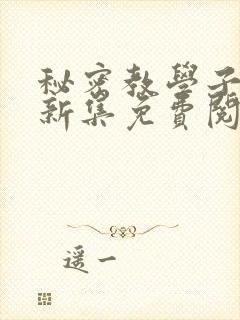 秘密教學子
新集免費閱
遥一